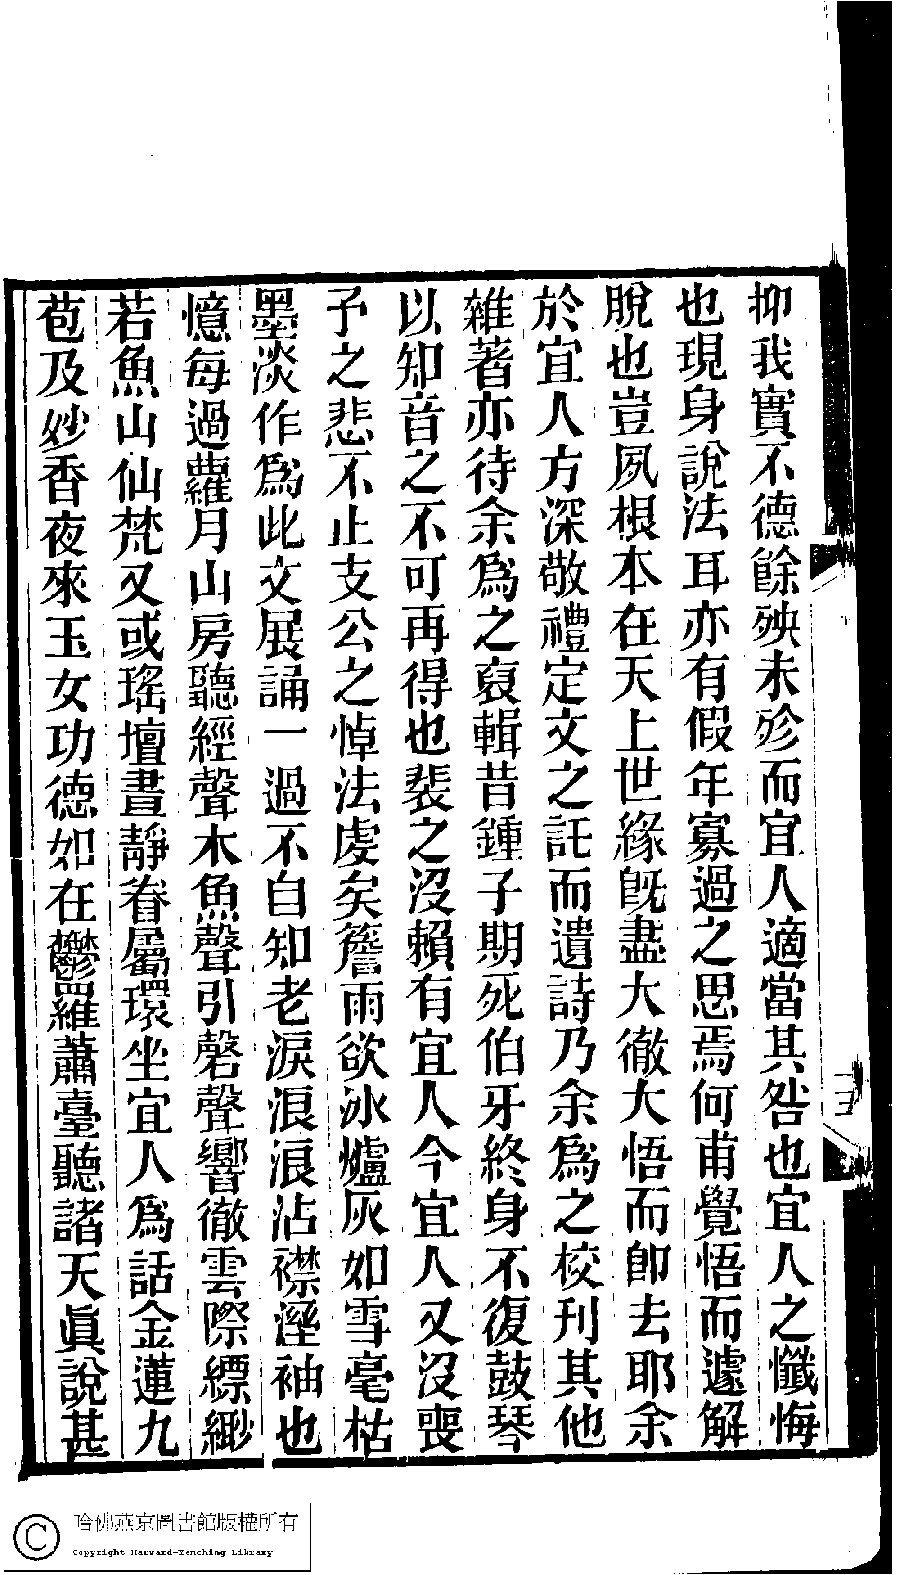 抑我實不德餘殃未殄而宜人適當其咎也宜人之懺悔
也現身說法耳亦有假年寡過之思焉何甫覺悟而遽解
脫也豈夙根本在天上世緣旣盡大徹大悟而卽去耶余
於宜人方深敬禮定文之託而遺詩乃余爲之校刊其他
雜著亦待余爲之裒輯昔鍾子期死伯牙終身不復鼓琴
以知音之不可再得也裴之沒賴有宜人今宜人又沒喪
予之悲不止支公之悼法虔矣簷雨欲冰爐灰如雪毫枯
墨淡作爲此文展誦一過不自知老淚浪浪沾襟溼袖也
憶每過蘿月山房聽經聲木魚聲引磬聲響徹雲際縹緲
若魚山仙梵又或瑤壇晝靜眷屬環坐宜人爲話金蓮九
苞及妙香夜來玉女功德如在鬱羅蕭臺聽諸天眞說甚
十三
哈佛燕京圖書館版權所有
Copyright Harvard-Yenching Library